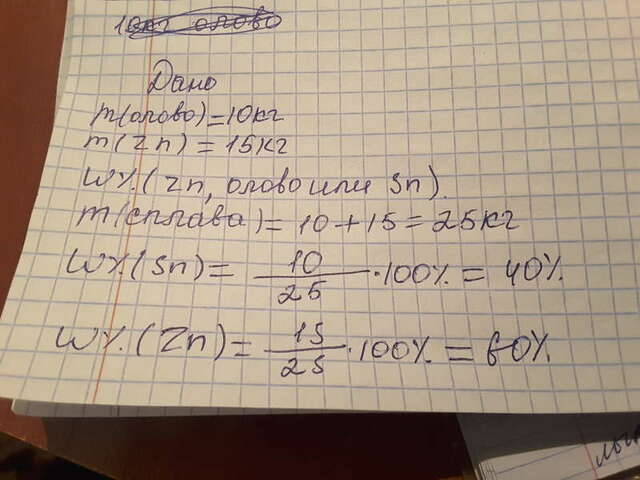 Дано
m(олово)=10кг
m(Zn)=15кг
W%(Zn, олово или Sn)
m(сплава)=10+15=25кг
W%(Sn)=10/25·100%=40%
W%(Zn)=15/25·100%=60%